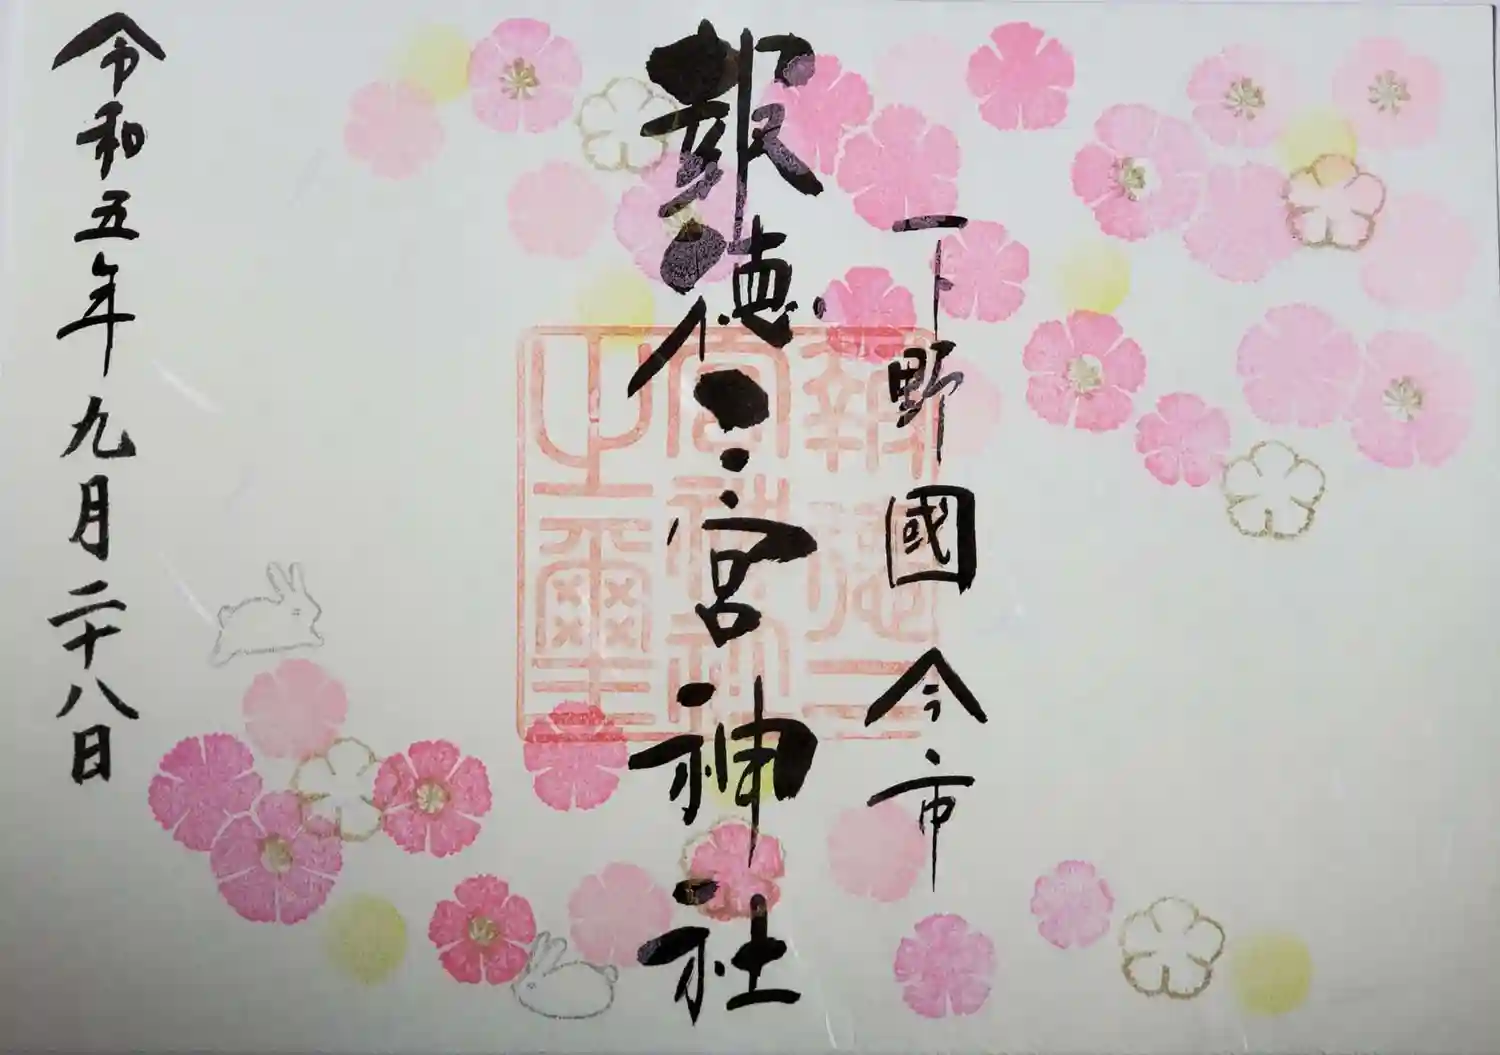 下野國今市
報徳二宮神社
報徳二
宮神社
之璽
令和五年九月二十八日